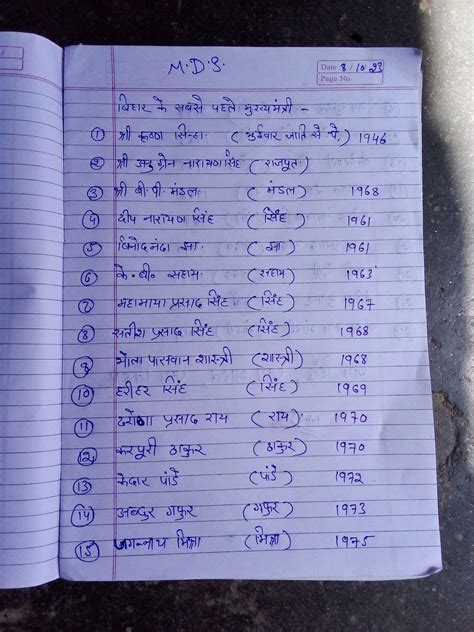 M.D.S.
Date 8/10/23
Page No.
बिहार के सबसे पहले मुख्यमंत्री -
① श्री कृष्ण सिन्हा. (भुईंवार जाति से थे.) 1946
② श्री अनुग्रेन नारायण सिंह (राजपूत)
③ श्री बी.पी. मंडल (मंडल) 1968
④ दीप नारायण सिंह (सिंह) 1961
⑤ विनोदनंदा झा. (झा) 1961
⑥ के. बी. सहाय (सहाय) 1963
⑦ महामाया प्रसाद सिंह (सिंह) 1967
⑧ सतीश प्रसाद सिंह (सिंह) 1968
⑨ भोला पासवान शास्त्री (शास्त्री) 1968
⑩ हरीहर सिंह (सिंह) 1969
⑪ दरोगा प्रसाद राय (राय) 1970
⑫ करपुरी ठाकुर (ठाकुर) 1970
⑬ केदार पांडे (पांडे) 1972
⑭ अब्दुर गफुर (गफुर) 1973
⑮ जगन्नाथ मिश्रा (मिश्रा) 1975